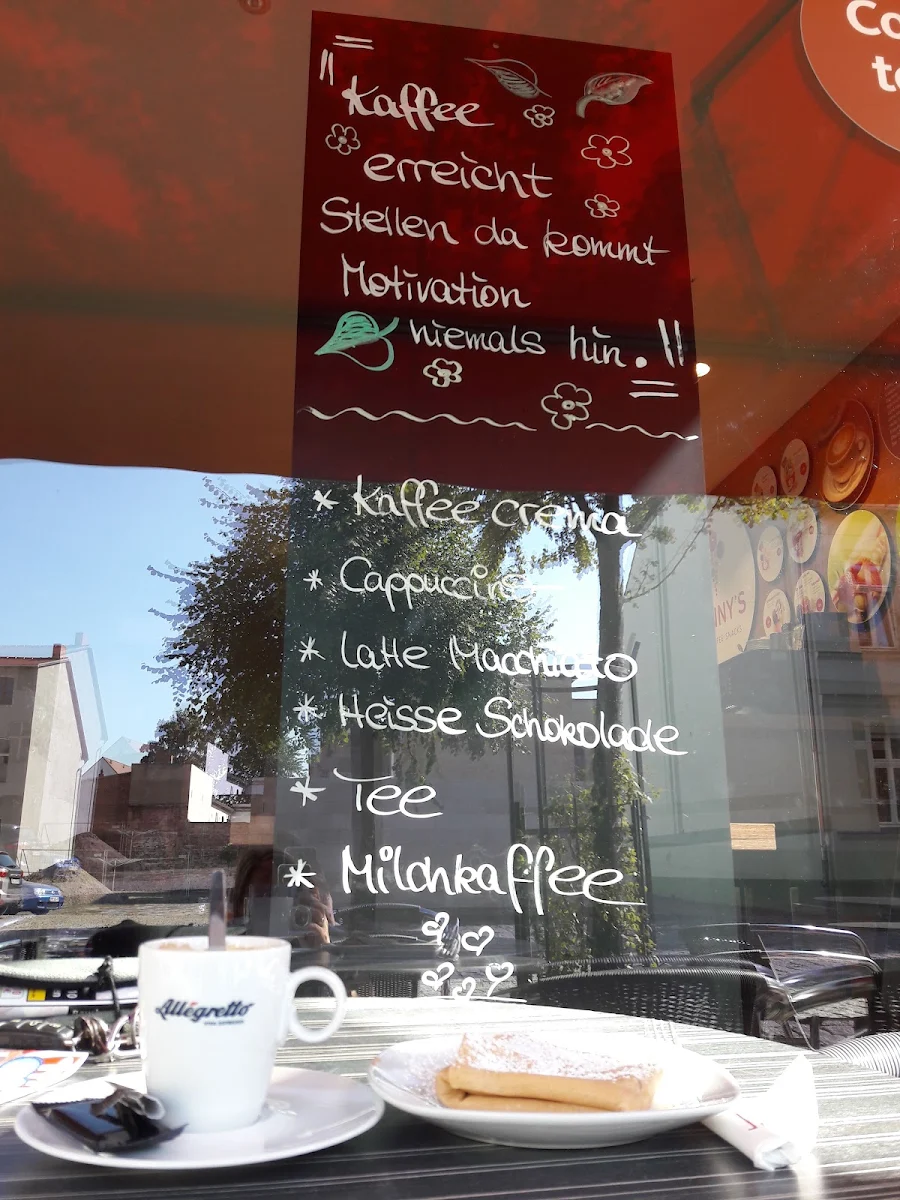 Co
te
"Kaffee
erreicht
Stellen da kommt
Motivation
niemals hin."
* Kaffee crema
* Cappuccino
* Latte Macchiato
* Heisse Schokolade
* Tee
* Milchkaffee
NNY'S
Allegretto